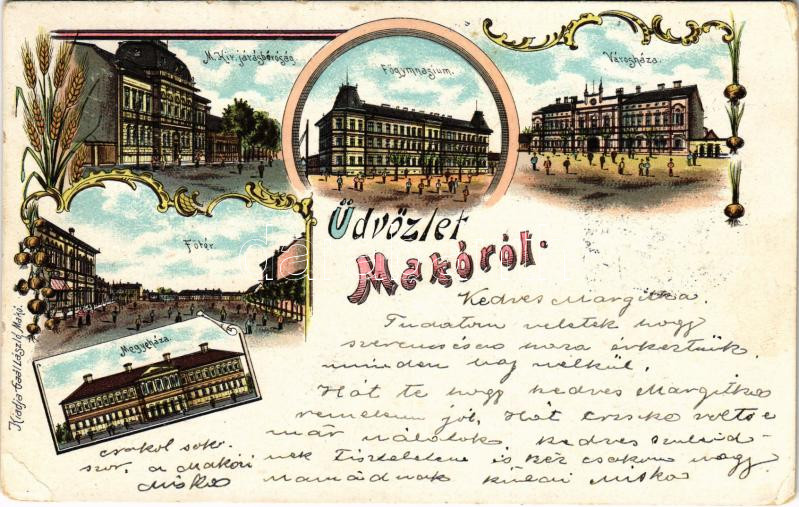 M. Kir. járásbíróság
Főgymnasium.
Városháza.
Főtér.
Megyeháza.
Üdvözlet
Makóról.
Kiadja Gaál László, Makó.
Kedves Margitka.
Tudatom veletek hogy
szerencsésen haza érkeztünk
minden baj nélkül.
Hát te hogy kedves Margitka
remélem jól, Hát Erzsike volt-e
már nálatok kedves szüleid-
nek tiszteletem is kéz csókom nagy
mamádnak küldi Miska
csókol sok-
szor. a Makói
Miska